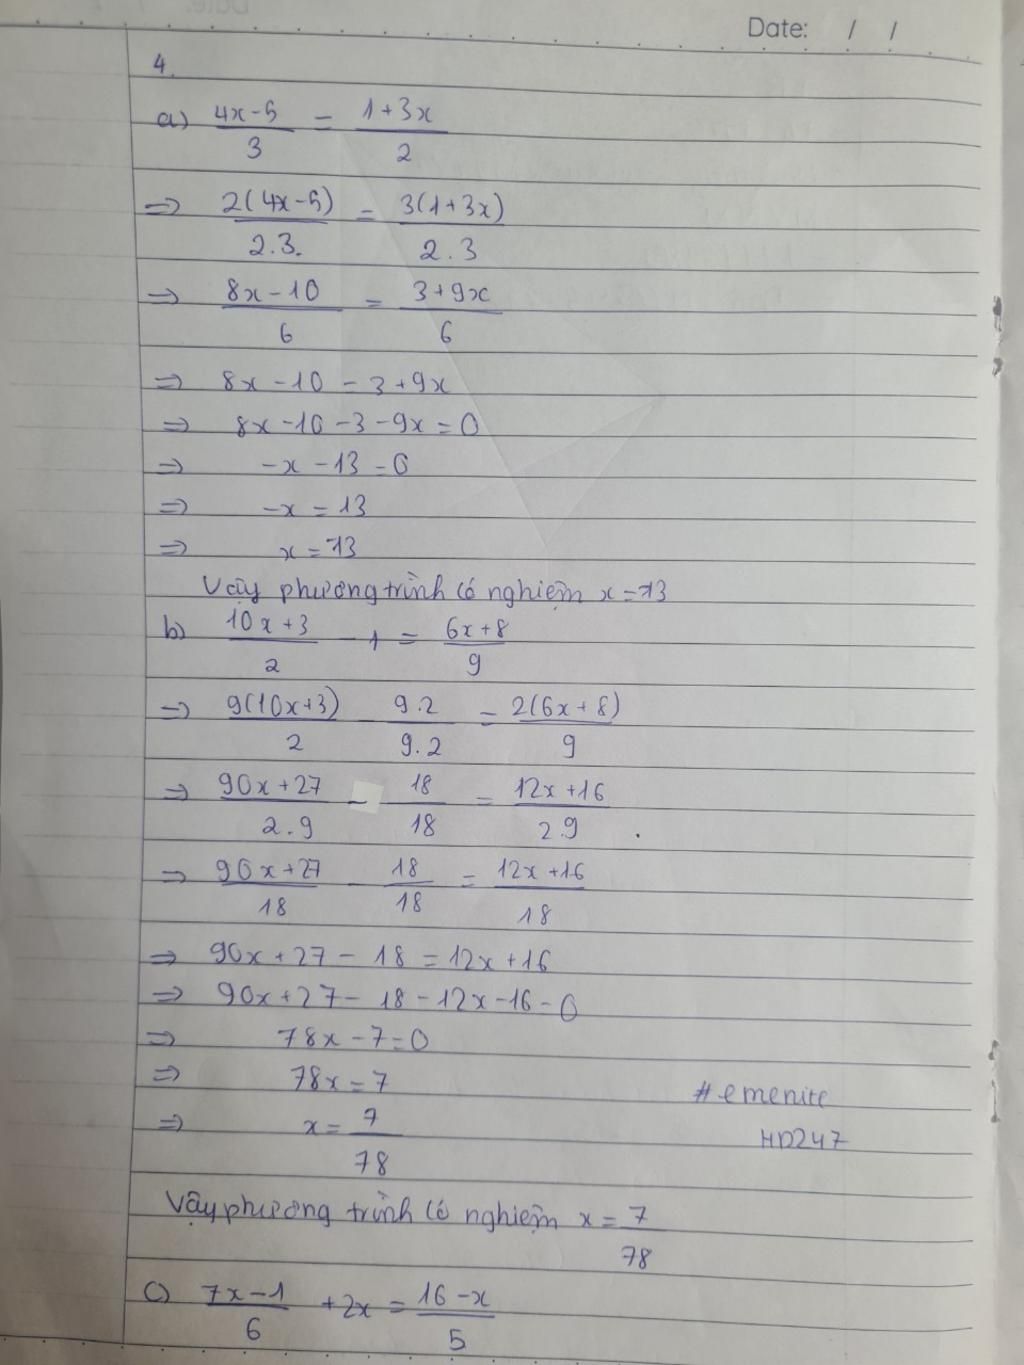 Date: / /
4.
a) (4x-5)/3 = (1+3x)/2
=> 2(4x-5)/2.3. = 3(1+3x)/2.3
=> (8x-10)/6 = (3+9x)/6
=> 8x-10 = 3+9x
=> 8x-10-3-9x=0
=> -x-13=0
=> -x=13
=> x=-13
Vậy phương trình có nghiệm x=-13
b) (10x+3)/2 - 1 = (6x+8)/9
=> 9(10x+3)/2 - 9.2/9.2 = 2(6x+8)/9
=> (90x+27)/2.9 - 18/18 = (12x+16)/2.9
=> (90x+27)/18 - 18/18 = (12x+16)/18
=> 90x+27-18=12x+16
=> 90x+27-18-12x-16=0
=> 78x-7=0
=> 78x=7
=> x=7/78
#emenite
HD247
Vậy phương trình có nghiệm x=7/78
c) (7x-1)/6 +2x = (16-x)/5